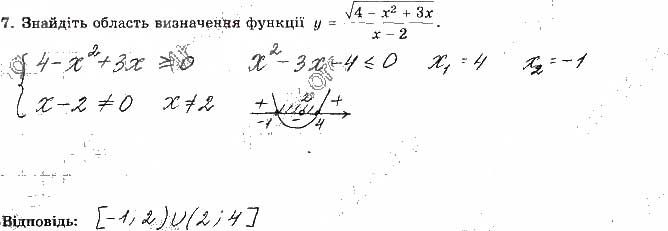 7. Знайдіть область визначення функції y = √(4 − x² + 3x) / (x − 2).
{ 4 − x² + 3x ≥ 0 x² − 3x − 4 ≤ 0 x₁ = 4 x₂ = −1
x − 2 ≠ 0 x ≠ 2 + 2 +
−1 − 4
Відповідь: [−1; 2) ∪ (2; 4]